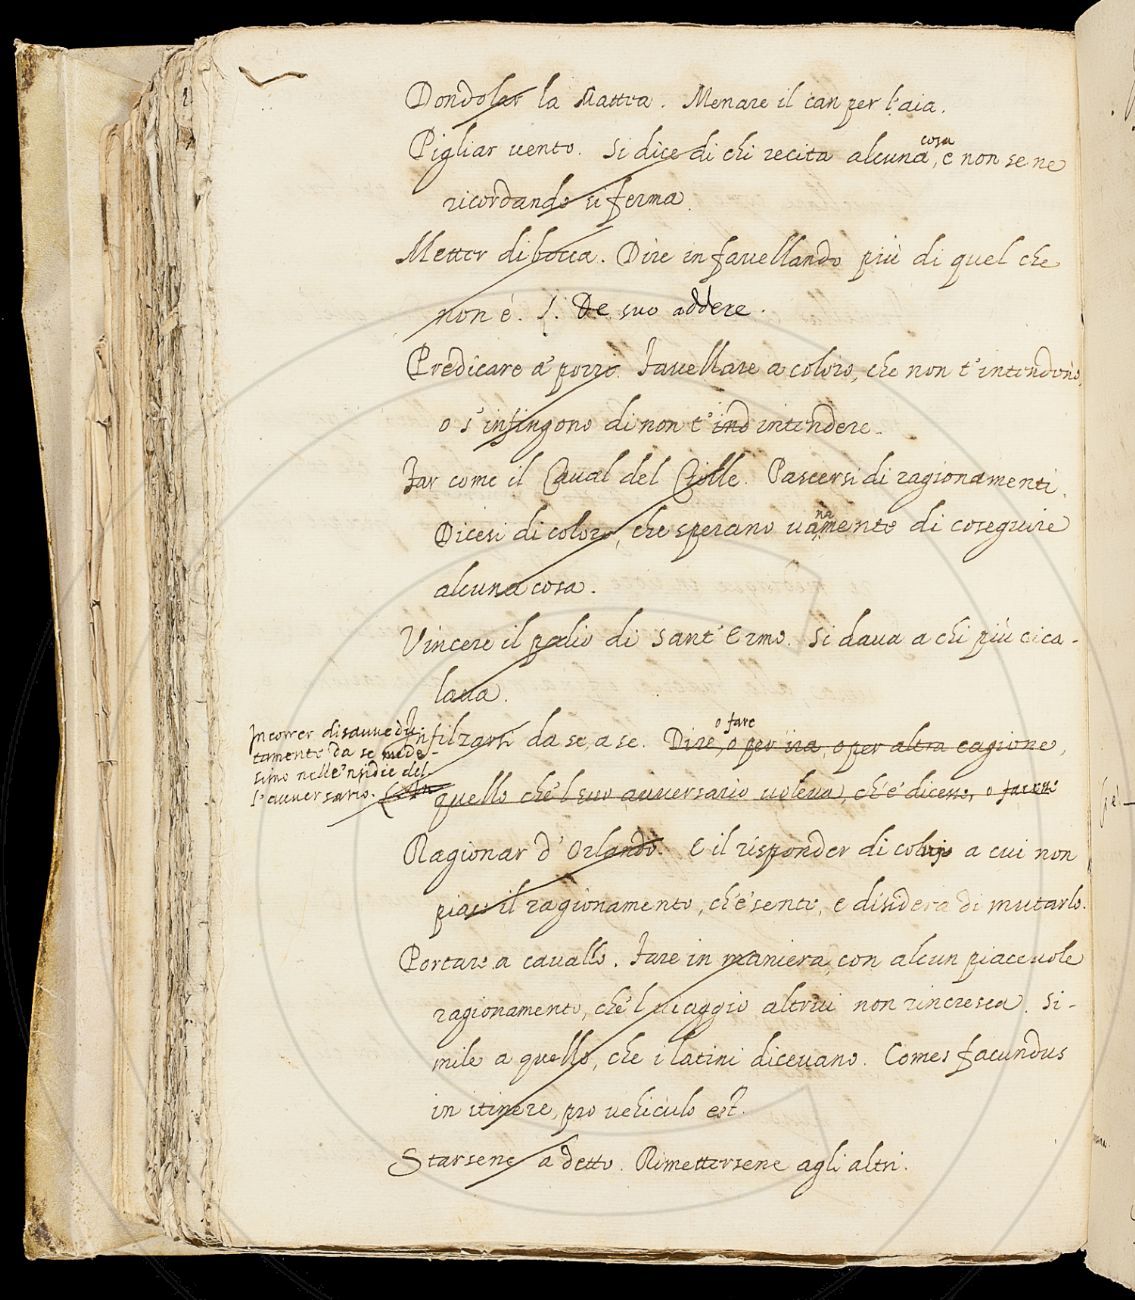 Dondolar la Mattea. Menare il can per l'aia.
Pigliar uento. Si dice di chi recita alcuna cosa, e non se ne
ricordando si ferma.
Metter di bocca. Dire in fauellando più di quel che
non é. L. De suo addere.
Predicare a' porri. Fauellare a coloro, che non t'intendono,
o s'infingono di non t'ind intendere.
Far come il Caual del Ciolle. Pascersi di ragionamenti.
Dicesi di coloro, che sperano uanamente di coseguire
alcuna cosa.
Vincere il palio di Sant'Ermo. Si daua a chi più cica-
laua.
Infilzarsi da se, a se. Dire, o fare o per ira, o per altra cagione,
Incorrer disauuedu-
tamente da se mede-
simo nelle 'nsidie del-
l'auuersario.
quello che 'l suo auuersario uoleua, ch'e' dicesse, o facesse
Ragionar d'Orlando. E il risponder di colui a cui non
piace il ragionamento, ch'e' sente, e disidera di mutarlo.
Portare a cauallo. Fare in maniera, con alcun piaceuole
ragionamento, che 'l uiaggio altrui non rincresca. Si-
mile a quello, che i latini diceuano. Comes facundus
in itinere, pro uehiculo est.
Starsene a detto. Rimettersene agli altri.